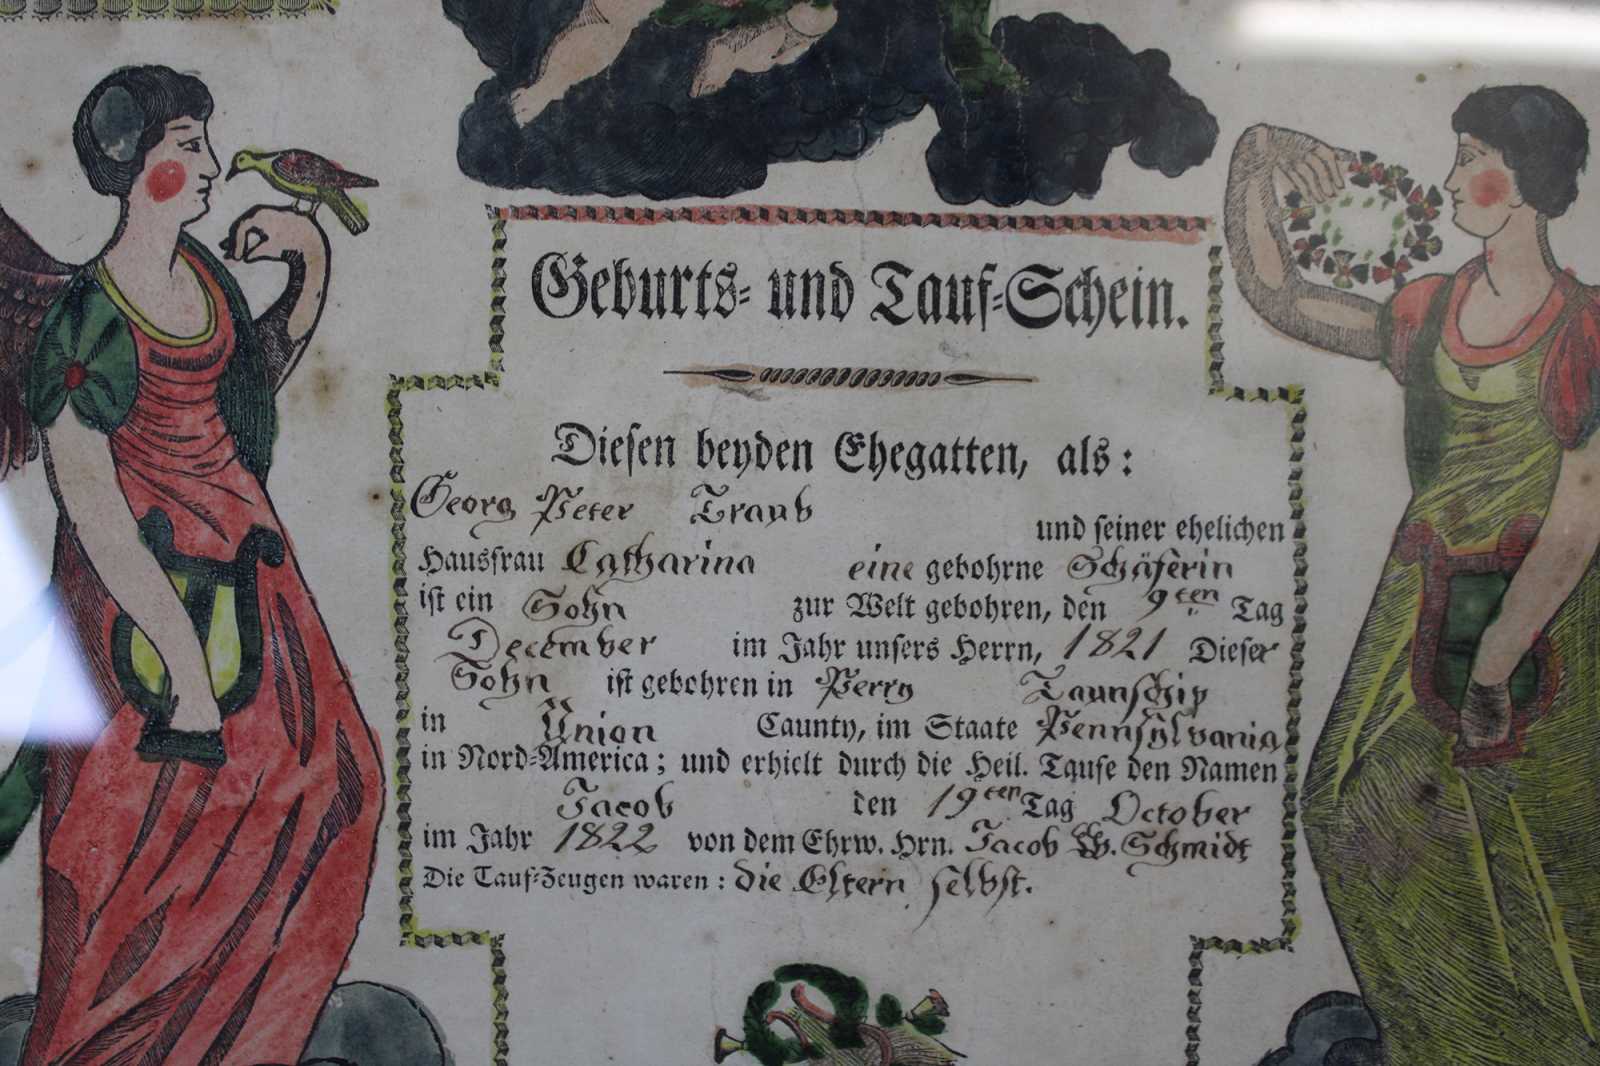 Geburts- und Tauf-Schein.
Diesen beyden Ehegatten, als:
Georg Peter Traub und seiner ehelichen
Hausfrau Catharina eine gebohrne Schäferin
ist ein Sohn zur Welt gebohren, den 9ten Tag
December im Jahr unsers Herrn, 1821 Dieser
Sohn ist gebohren in Perry Taunschip
in Union Caunty, im Staate Pennsylvania
in Nord-America; und erhielt durch die Heil. Taufe den Namen
Jacob den 19ten Tag October
im Jahr 1822 von dem Ehrw. Hrn. Jacob W. Schmidt
Die Tauf-Zeugen waren: die Eltern selbst.